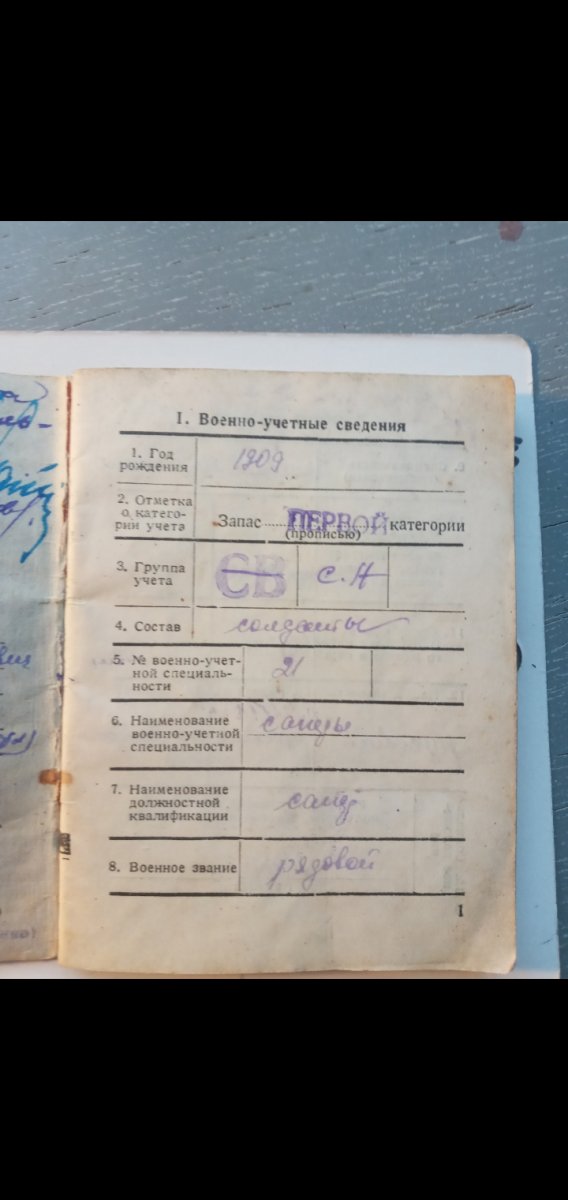 I. Военно-учетные сведения
1. Год
рождения
1909
2. Отметка
о катего-
рии учета
Запас ПЕРВОЙ категории
(прописью)
3. Группа
учета
СВ
С.А
4. Состав
солдаты
5. № военно-учет-
ной специаль-
ности
21
6. Наименование
военно-учетной
специальности
саперы
7. Наименование
должностной
квалификации
сапер
8. Военное звание
рядовой
1